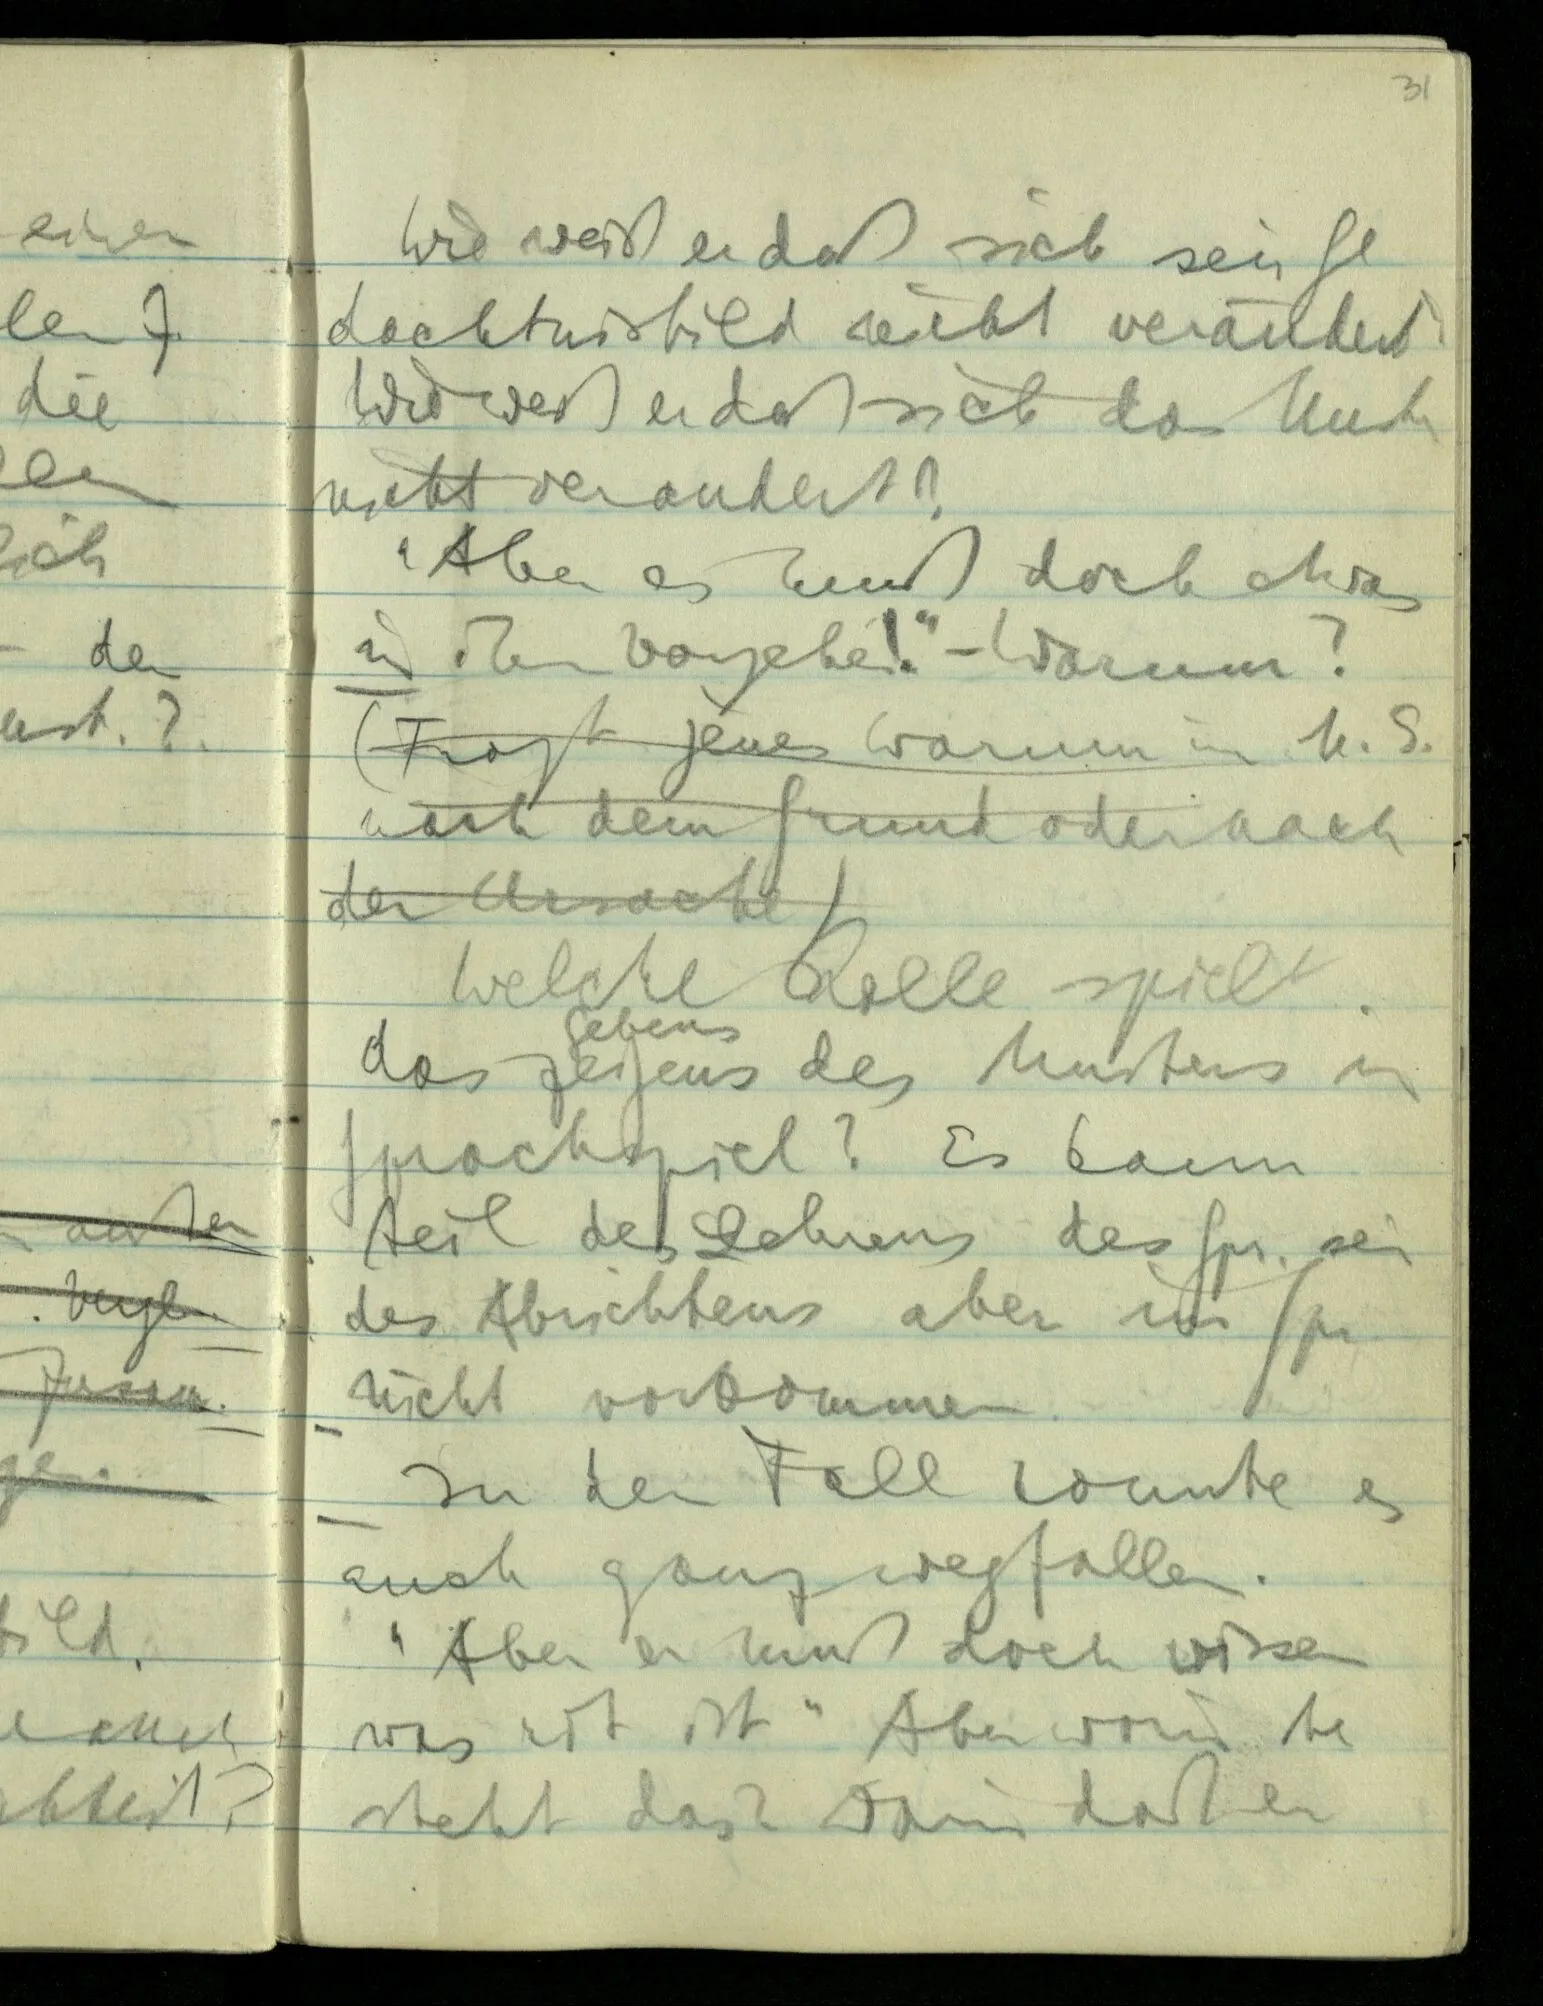 einen
die
den
31
Wie weiß er daß sich sein Ge
dächtnisbild nicht verändert?
Wie weiß er daß sich das Muster
nicht verändert?
"Aber es muß doch etwas
in ihm vorgehen!" – Warum?
(Fragt jenes Warum in U.S.
nach dem Grund oder nach
der Ursache)
Welche Rolle spielt
gebens
das zeigens des Musters im
Sprachspiel? Es kann
teil des Lehrens des Spr. sein
des Abrichtens aber im Spr
nicht vorkommen
In dem Fall könnte es
auch ganz wegfallen.
"Aber er muß doch wissen
was rot ist" Aber worin be
steht das? Darin daß er